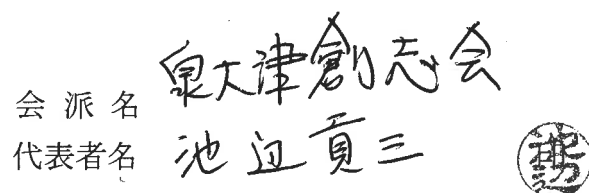 会派名 泉大津創志会
代表者名 池辺貢三
池辺